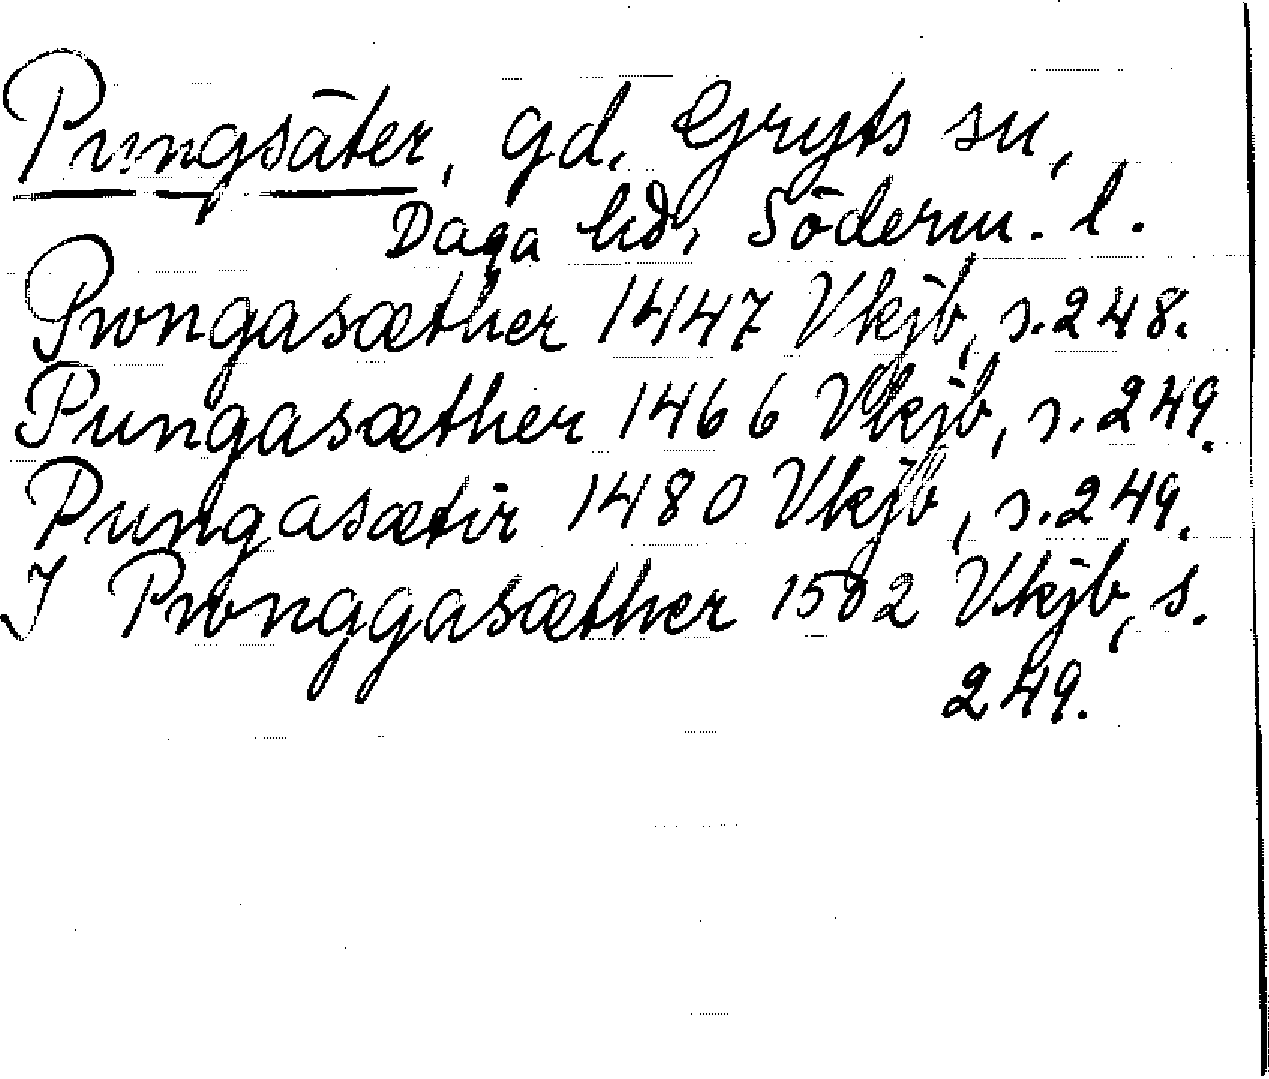 Pungsäter, gd, Gryts sn,
Daga hd, Söderm. l.
Pwngasæther 1447 Vkjb, s. 248.
Pungasæther 1466 Vkjb, s. 249.
Pungasætir 1480 Vkjb, s. 249.
J Pwnggasæther 1502 Vkjb, s.
249.